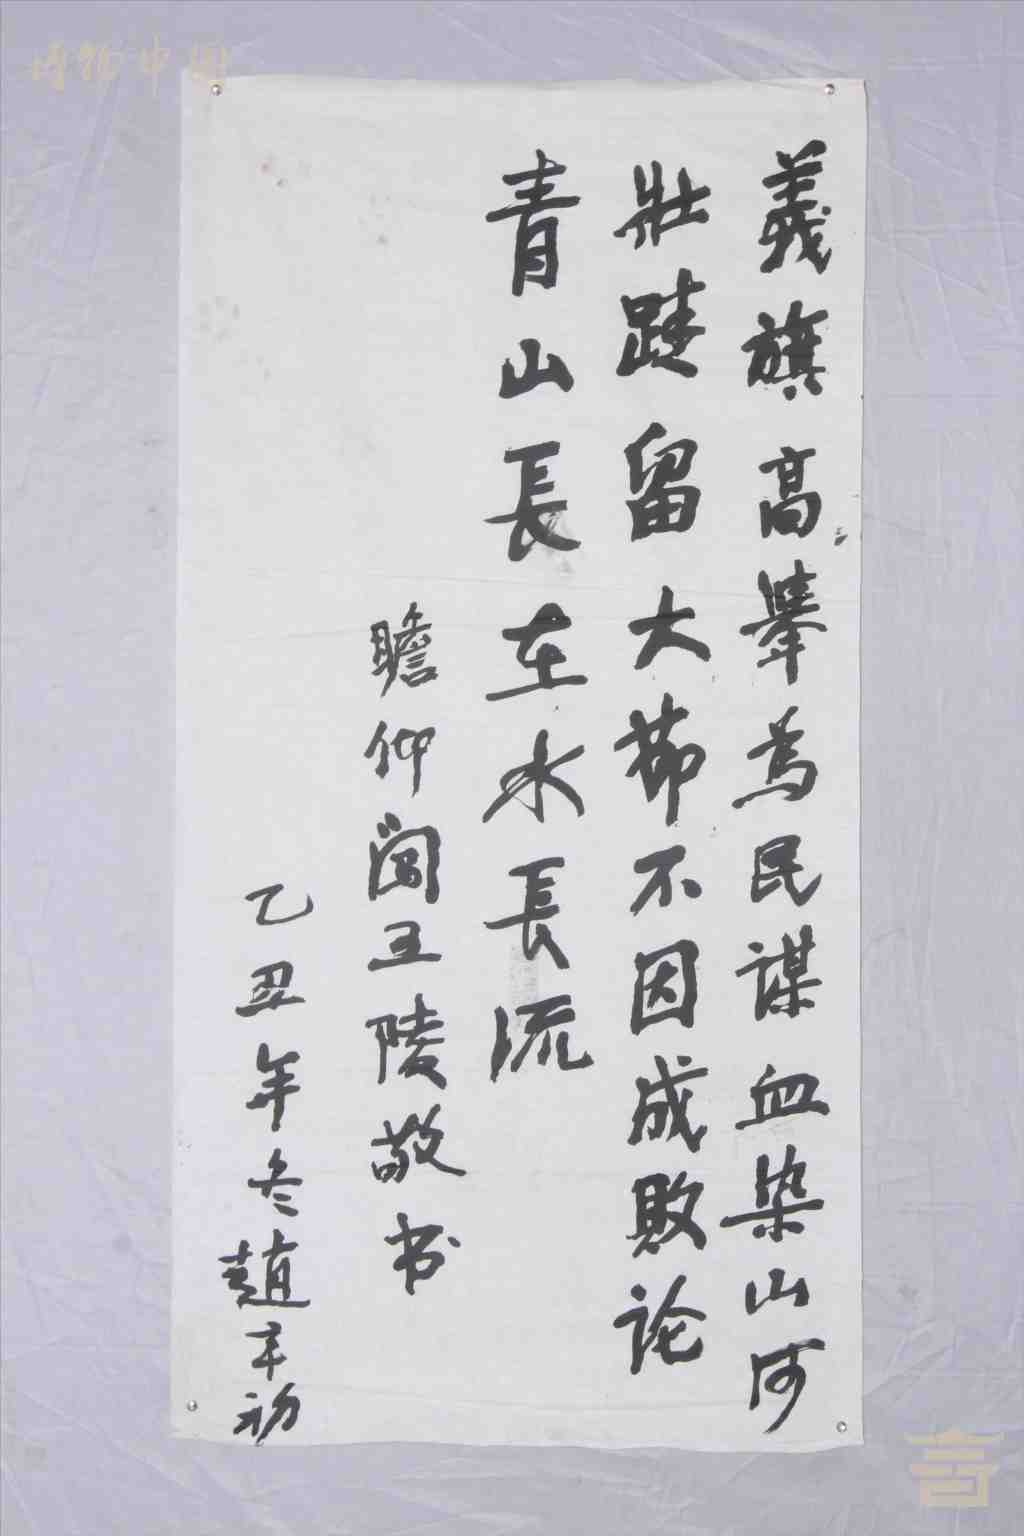 義旗高舉為民謀血染山河
壯跡留大節不因成敗论
青山長在水長流
瞻仰闯王陵敬书
乙丑年冬趙辛初
博物中国